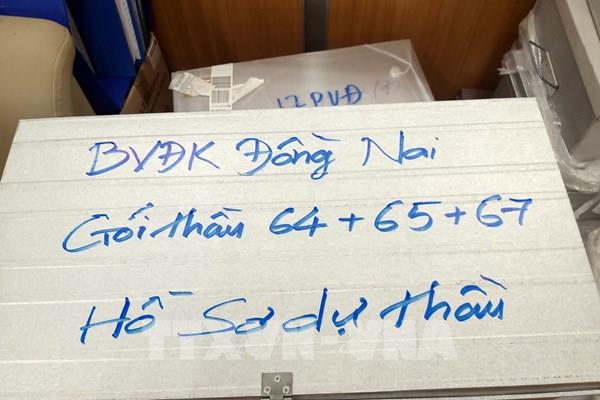 17 PVĐ
BVĐK Đồng Nai
Gói thầu 64 + 65 + 67
Hồ sơ dự thầu
TTXVN - VNA